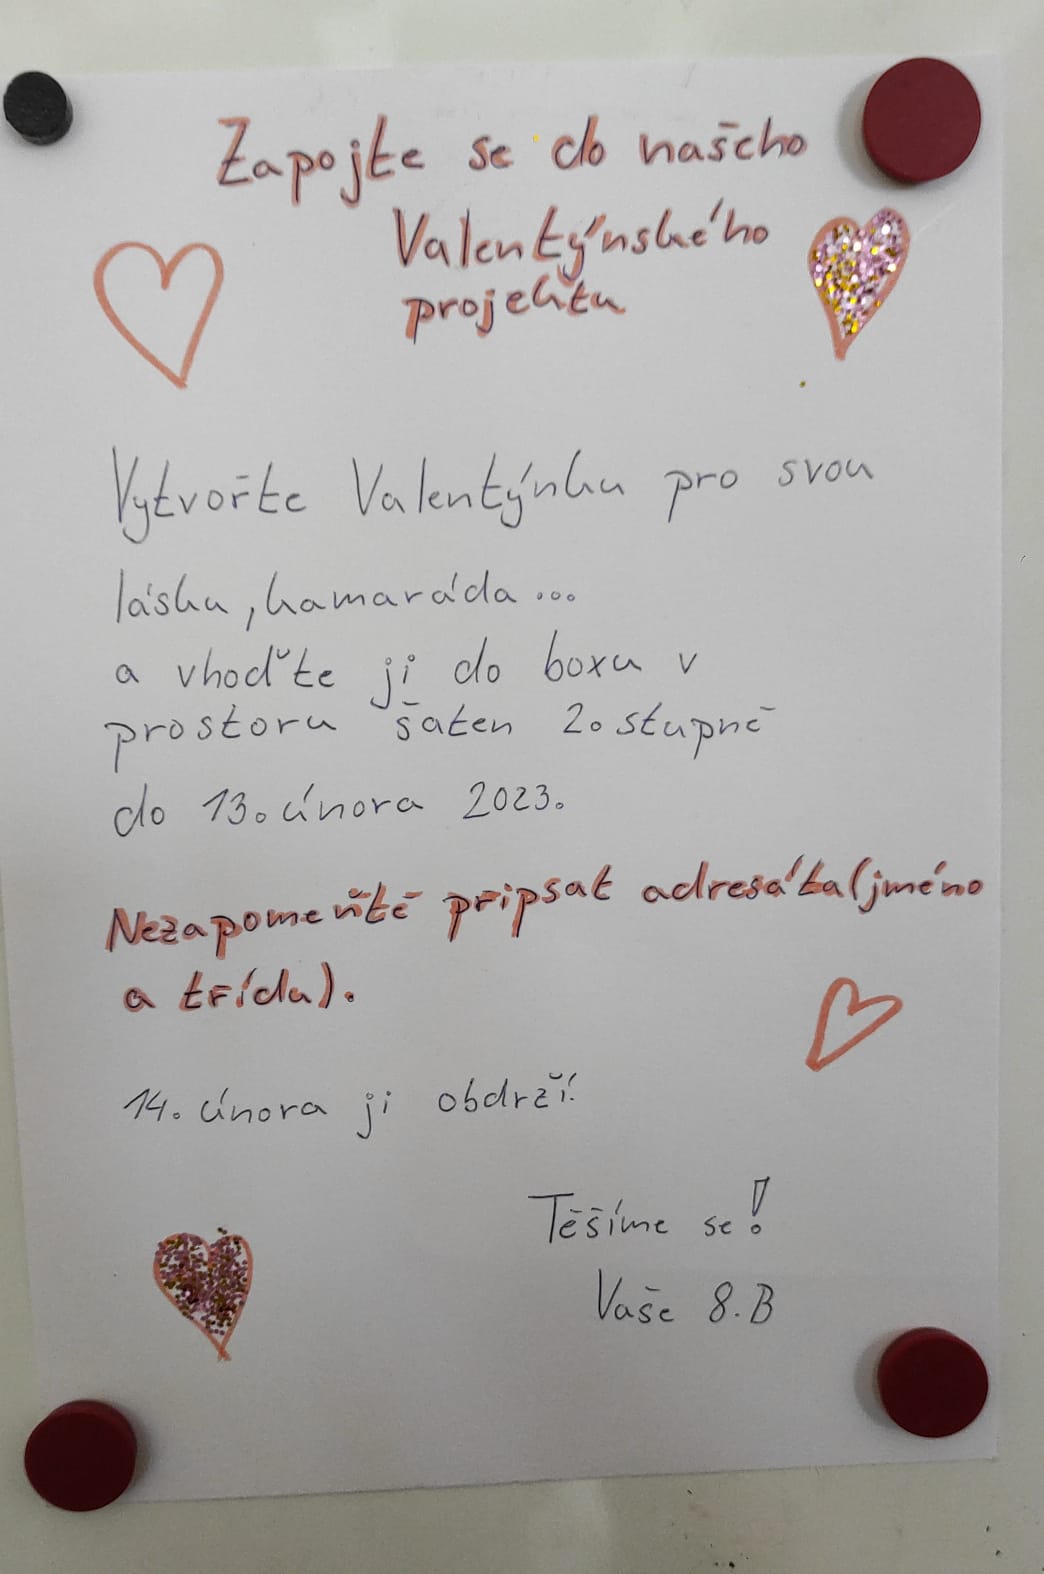 Zapojte se do našeho
Valentýnského
projektu
Vytvořte Valentýnku pro svou
lásku, kamaráda...
a vhoďte ji do boxu v
prostoru šaten 2. stupně
do 13. února 2023.
Nezapomeňtě připsat adresáta (jméno
a třída).
14. února ji obdrží.
Těšíme se!
Vaše 8.B